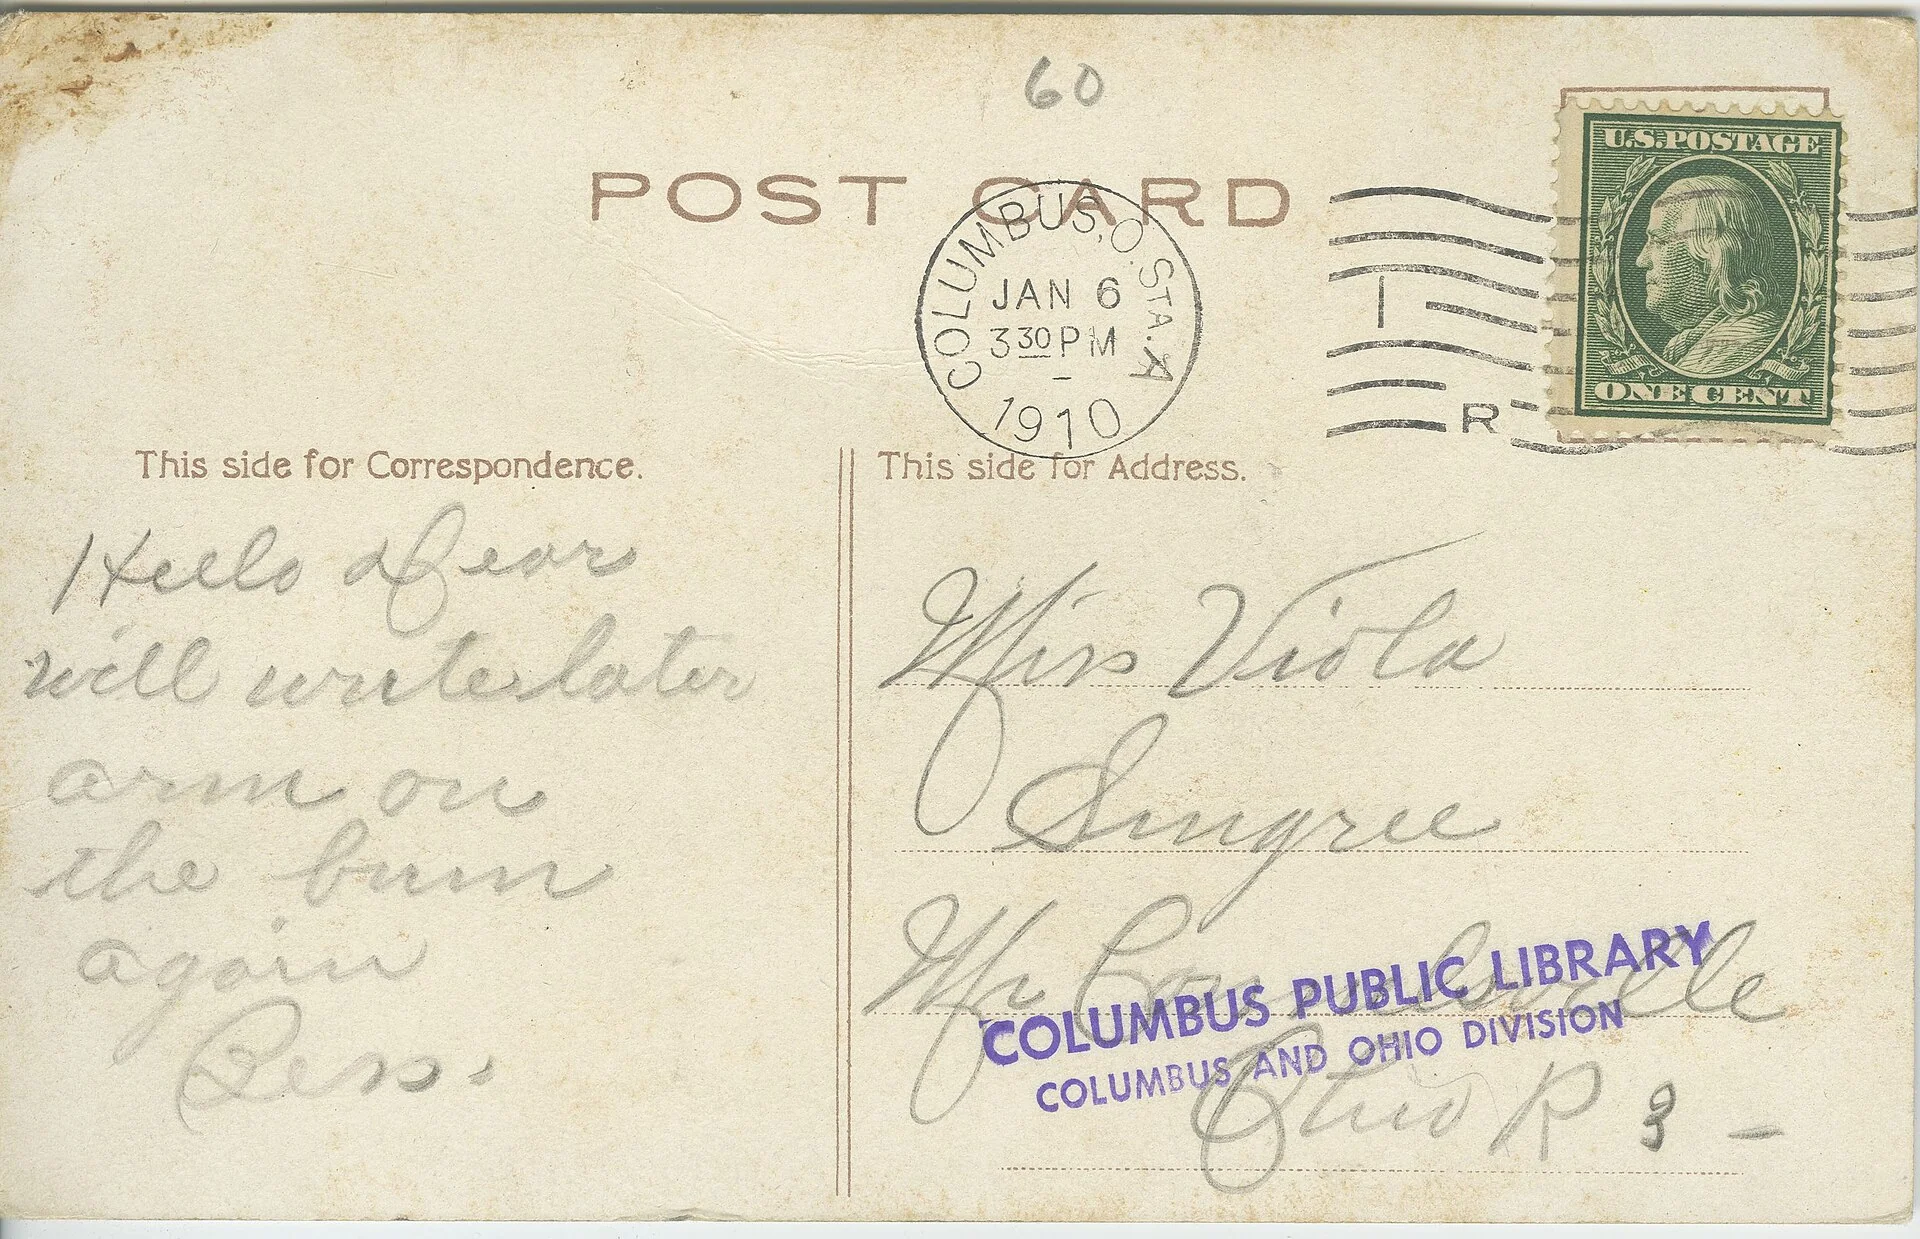 60
POST CARD
COLUMBUS, O. STA. A
JAN 6
3 30 PM
1910
1
R
U.S. POSTAGE
ONE CENT
This side for Correspondence.
Hello Dear
will write later
arm on
the bum
again
Bess.
This side for Address.
Miss Viola
Singree
Mc Connelsville
Ohio R 3 –
COLUMBUS PUBLIC LIBRARY
COLUMBUS AND OHIO DIVISION